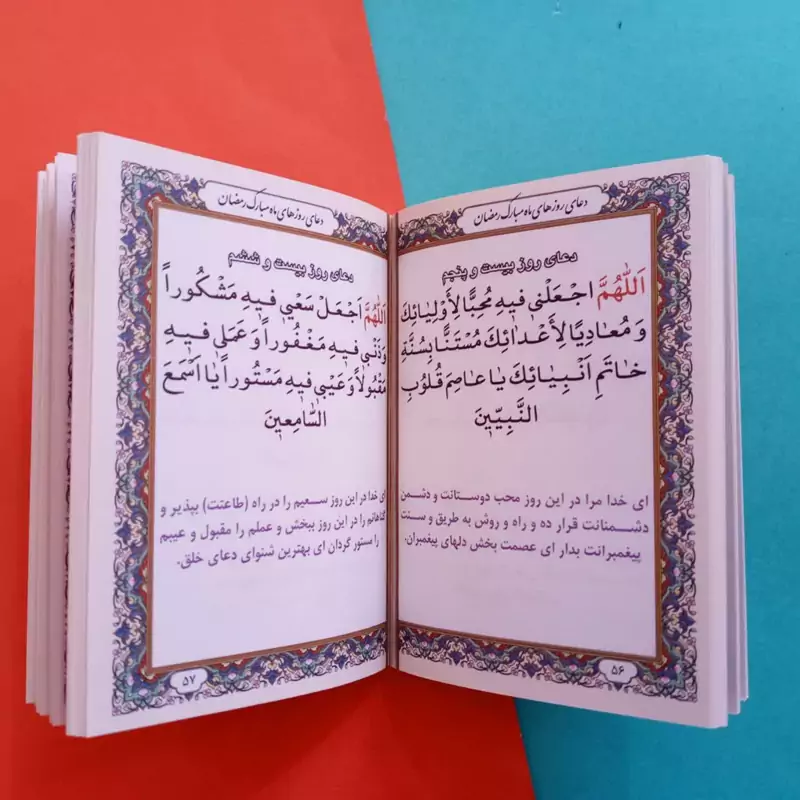 دعای روزهای ماه مبارک رمضان
دعای روز بیست و پنجم
اَللّهُمَّ اجْعَلْنی فیهِ مُحِبًّا لِأَوْلِیٰائِكَ
وَ مُعٰادِیًا لِأَعْدٰائِكَ مُسْتَنًّا بِسُنَّةِ
خٰاتَمِ اَنْبِیٰائِكَ یٰا عٰاصِمَ قُلُوبِ
النَّبِیّینَ
ای خدا مرا در این روز محب دوستانت و دشمن
دشمنانت قرار ده و راه و روش به طریق و سنت
پیغمبرانت بدار ای عصمت بخش دلهای پیغمبران.
۵۶
دعای روزهای ماه مبارک رمضان
دعای روز بیست و ششم
اَللّهُمَّ اَجْعَلْ سَعْیی فیهِ مَشْکُوراً
وَ ذَنْبی فیهِ مَغْفُوراً وَ عَمَلی فیهِ
مَقْبُولاً وَ عَیْبی فیهِ مَسْتُوراً یٰا اَسْمَعَ
السّٰامِعینَ
ای خدا در این روز سعیم را در راه (طاعتت) بپذیر و
گناهانم را در این روز ببخش و عملم را مقبول و عیبم
را مستور گردان ای بهترین شنوای دعای خلق.
۵۷